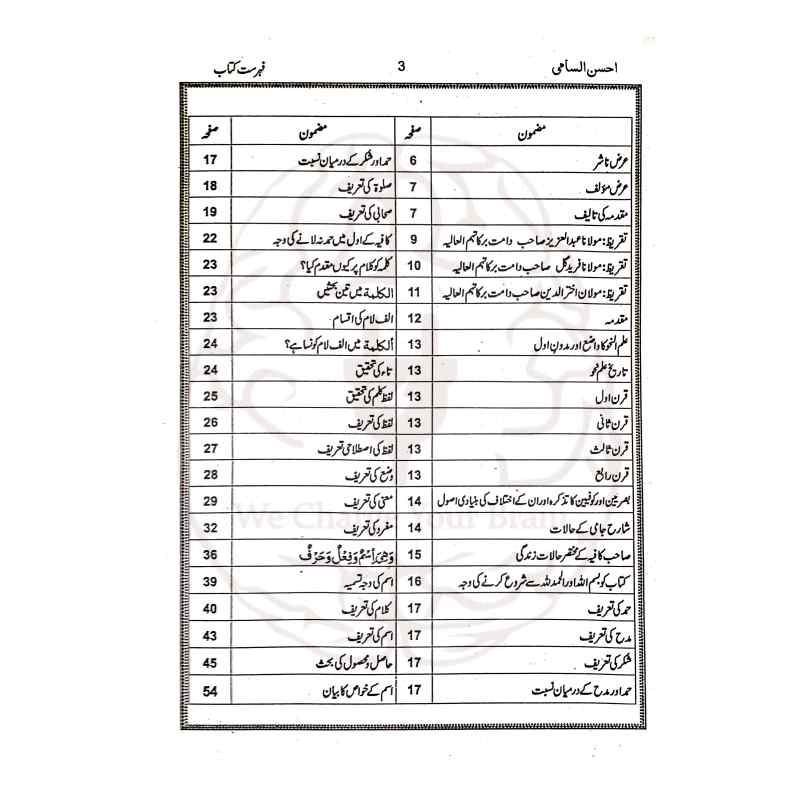 احسن السامی 3 فہرست کتاب
مضمون صفحہ مضمون صفحہ
عرض ناشر 6 حمد اور شکر کے درمیان نسبت 17
عرض مؤلف 7 صلوۃ کی تعریف 18
مقدمہ کی تالیف 7 صحابی کی تعریف 19
تقریظ: مولانا عبدالعزیز صاحب دامت برکاتہم العالیہ 9 کافیہ کے اول میں حمد نہ لانے کی وجہ 22
تقریظ: مولانا فرید گل صاحب دامت برکاتہم العالیہ 10 کلمہ کو کلام پر کیوں مقدم کیا؟ 23
تقریظ: مولانا اختر الدین صاحب دامت برکاتہم العالیہ 11 الکلمۃ میں تین بحثیں 23
مقدمہ 12 الف لام کی اقسام 23
علم النحو کا واضع اور مدون اول 13 ألکلمۃ میں الف لام کونسا ہے؟ 24
تاریخ علم نحو 13 تاء کی تحقیق 24
قرن اول 13 لفظ کلم کی تحقیق 25
قرن ثانی 13 لفظ کی تعریف 26
قرن ثالث 13 لفظ کی اصطلاحی تعریف 27
قرن رابع 13 وضع کی تعریف 28
بصریین اور کوفیین کا تذکرہ اور ان کے اختلاف کی بنیادی اصول 14 معنی کی تعریف 29
شارح جامی کے حالات 14 مفرد کی تعریف 32
صاحب کافیہ کے مختصر حالات زندگی 15 وَهِیَ اِسْمٌ وَفِعْلٌ وَحَرْفٌ 36
کتاب کو بسم اللہ اور الحمد للہ سے شروع کرنے کی وجہ 16 اسم کی وجہ تسمیہ 39
حمد کی تعریف 17 کلام کی تعریف 40
مدح کی تعریف 17 اسم کی تعریف 43
شکر کی تعریف 17 حاصل و محصول کی بحث 45
حمد اور مدح کے درمیان نسبت 17 اسم کے خواص کا بیان 54
We Change Your Brain